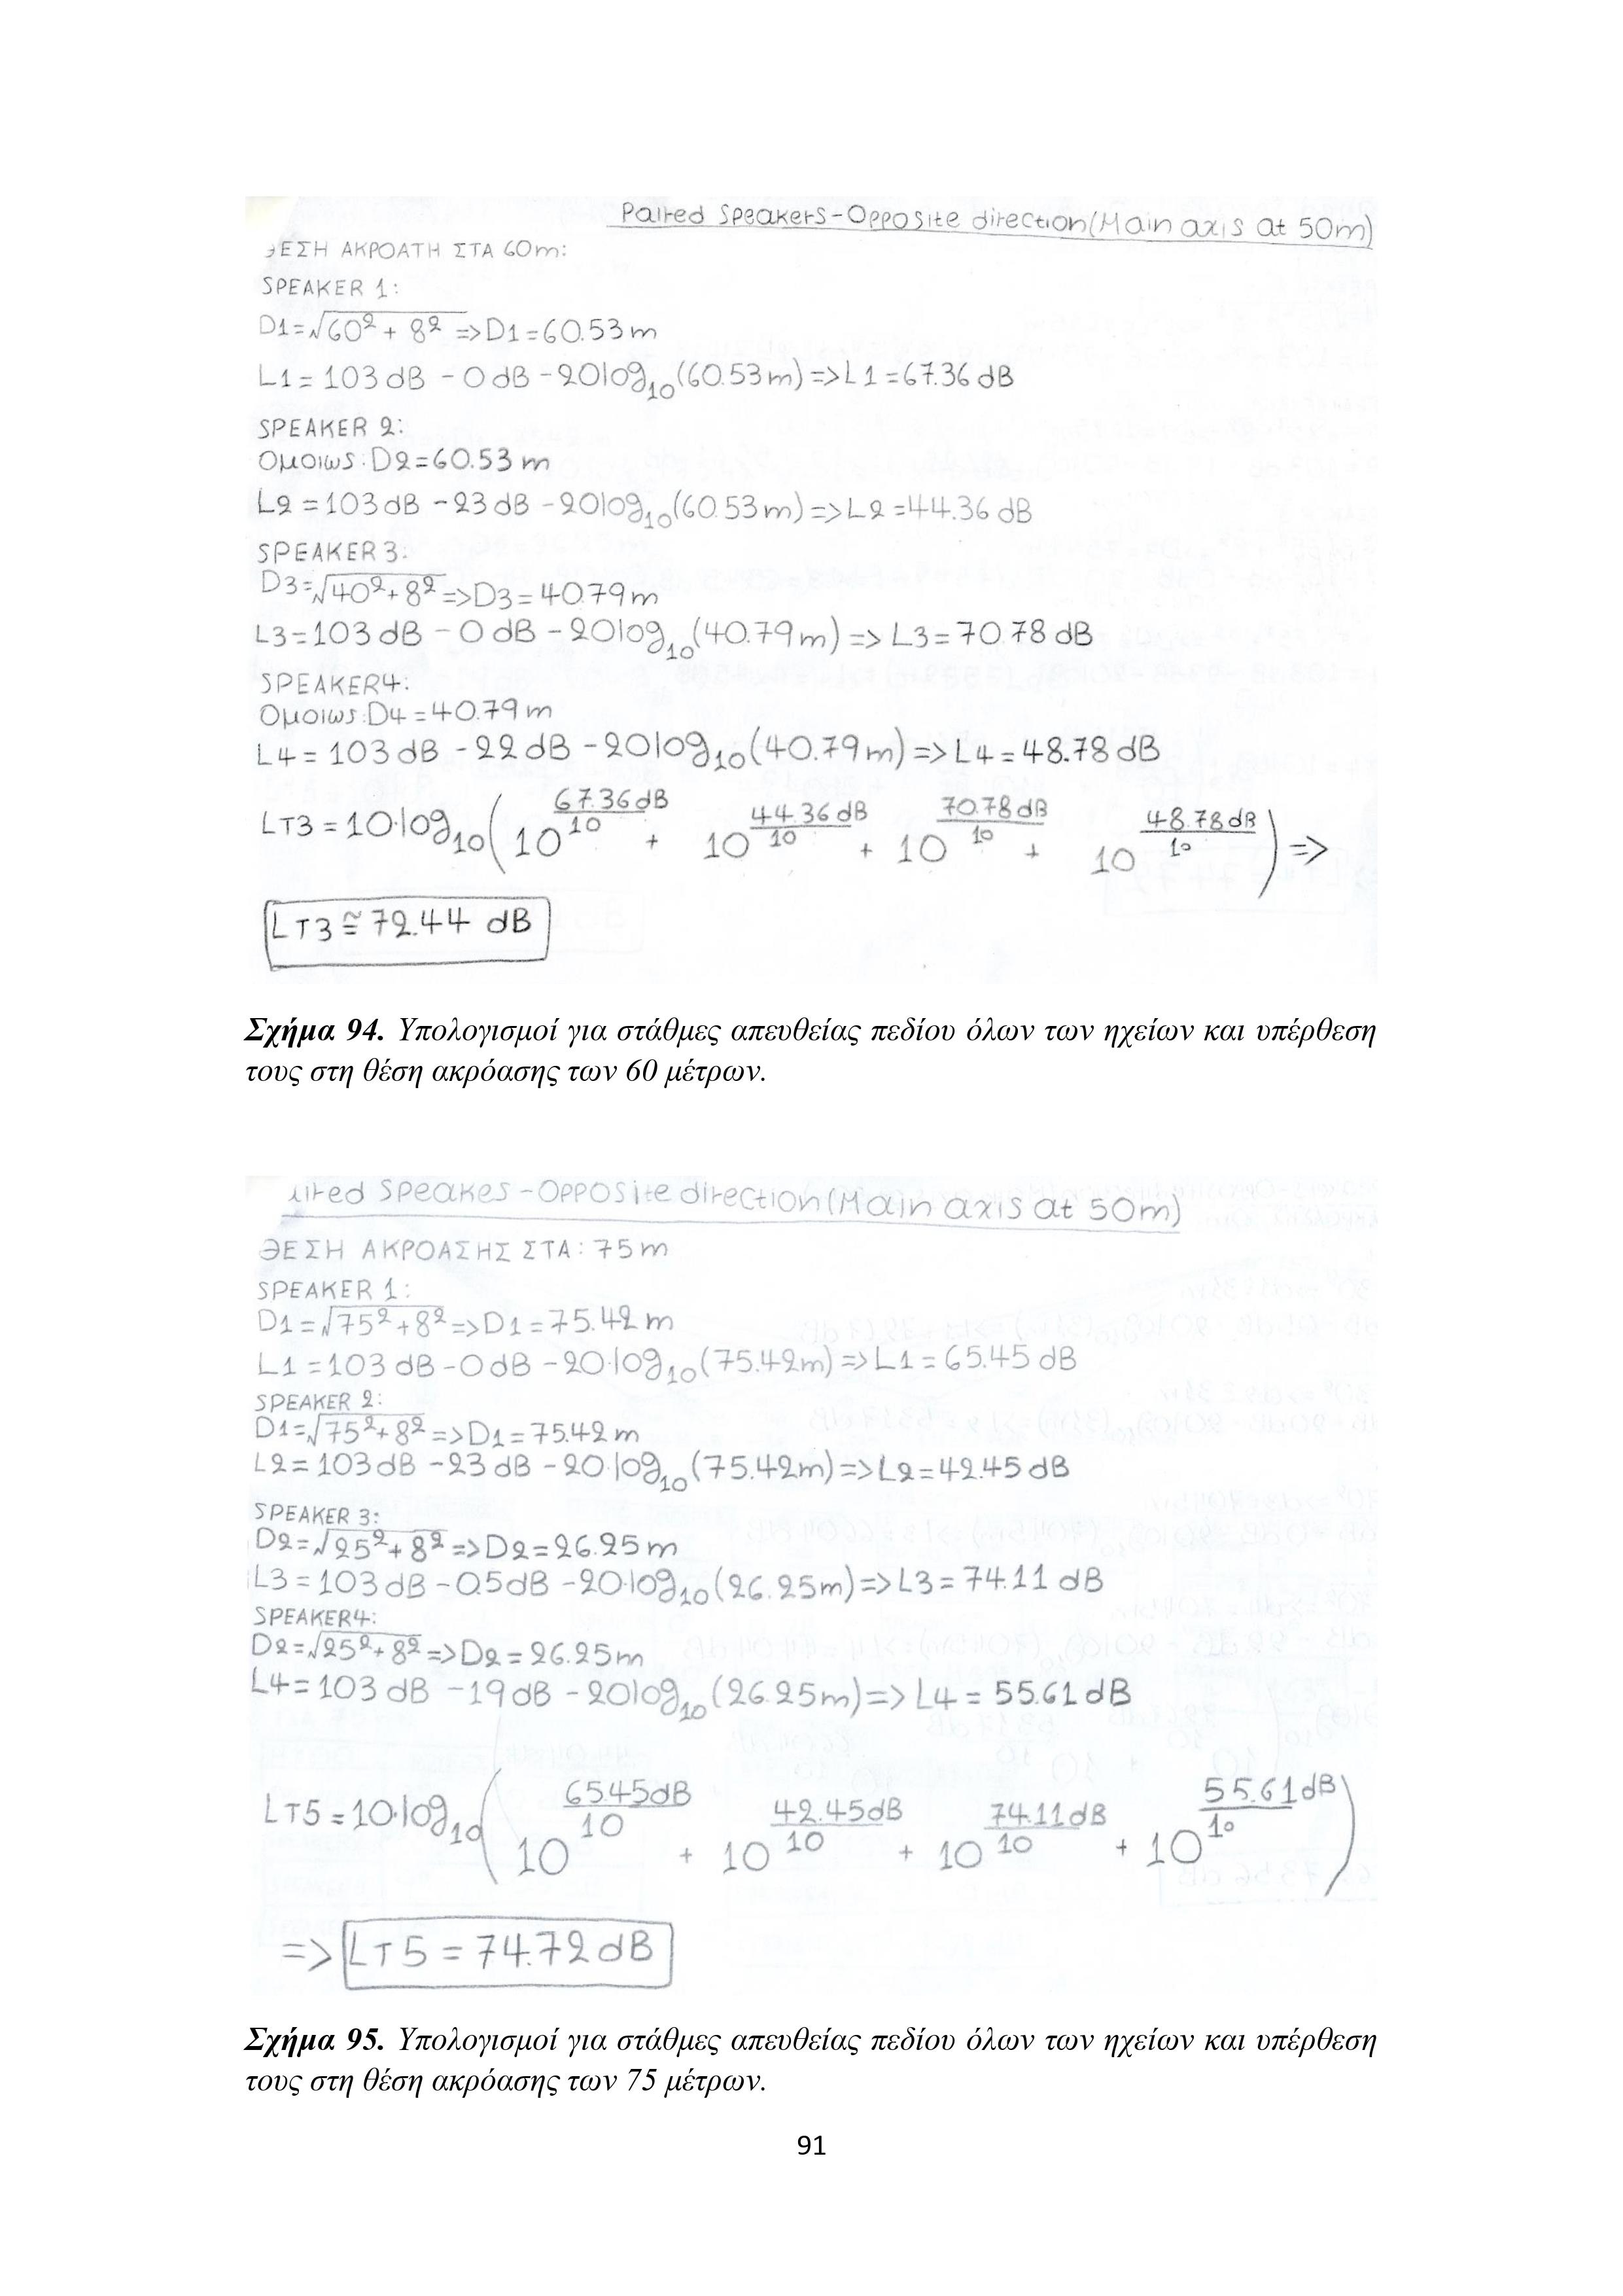 Paired Speakers-Opposite direction(Main axis at 50m)
ΘΕΣΗ ΑΚΡΟΑΤΗ ΣΤΑ 60m:
SPEAKER 1:
D1=√60²+8² =>D1=60.53m
L1=103dB-0dB-20log₁₀(60.53m)=>L1=67.36dB
SPEAKER 2:
Ομοιως:D2=60.53m
L2=103dB-23dB-20log₁₀(60.53m)=>L2=44.36dB
SPEAKER3:
D3=√40²+8²=>D3=40.79m
L3=103dB-0dB-20log₁₀(40.79m)=>L3=70.78dB
SPEAKER4:
Ομοιως:D4=40.79m
L4=103dB-22dB-20log₁₀(40.79m)=>L4=48.78dB
LT3=10·log₁₀(10^(67.36dB/10) + 10^(44.36dB/10) + 10^(70.78dB/10) + 10^(48.78dB/10))=>
LT3≅72.44 dB
Σχήμα 94. Υπολογισμοί για στάθμες απευθείας πεδίου όλων των ηχείων και υπέρθεση
τους στη θέση ακρόασης των 60 μέτρων.
ired Speakes-Opposite direction(Main axis at 50m)
ΘΕΣΗ ΑΚΡΟΑΣΗΣ ΣΤΑ: 75m
SPEAKER 1:
D1=√75²+8²=>D1=75.42m
L1=103dB-0dB-20·log₁₀(75.42m)=>L1=65.45dB
SPEAKER 2:
D1=√75²+8²=>D1=75.42m
L2=103dB-23dB-20·log₁₀(75.42m)=>L2=42.45dB
SPEAKER 3:
D2=√25²+8²=>D2=26.25m
L3=103dB-0.5dB-20·log₁₀(26.25m)=>L3=74.11dB
SPEAKER4:
D2=√25²+8²=>D2=26.25m
L4=103dB-19dB-20log₁₀(26.25m)=>L4=55.61dB
LT5=10·log₁₀(10^(65.45dB/10) + 10^(42.45dB/10) + 10^(74.11dB/10) + 10^(55.61dB/10))
=>LT5=74.72dB
Σχήμα 95. Υπολογισμοί για στάθμες απευθείας πεδίου όλων των ηχείων και υπέρθεση
τους στη θέση ακρόασης των 75 μέτρων.
91